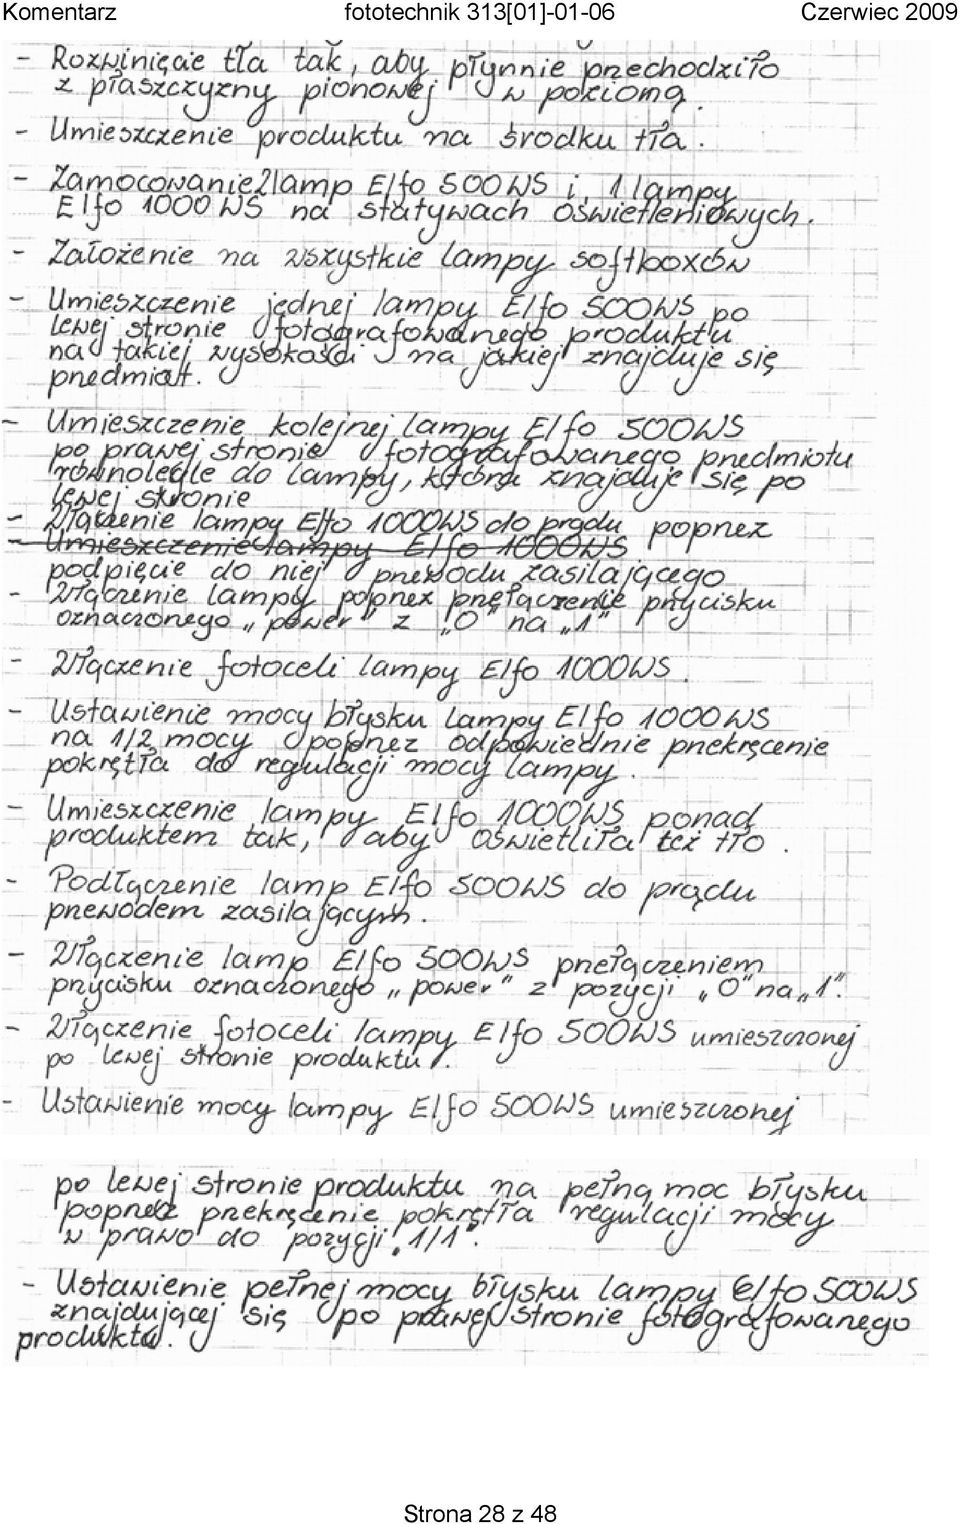 Komentarz fototechnik 313[01]-01-06 Czerwiec 2009
- Rozwinięcie tła tak, aby płynnie przechodziło
z płaszczyzny pionowej w poziomą.
- Umieszczenie produktu na środku tła.
- Zamocowanie 2 lamp Elfo 500WS i 1 lampy
Elfo 1000 WS na statywach oświetleniowych.
- Założenie na wszystkie lampy softboxów
- Umieszczenie jednej lampy Elfo 500WS po
lewej stronie fotografowanego produktu
na takiej wysokości na jakiej znajduje się
przedmiot.
- Umieszczenie kolejnej lampy Elfo 500WS
po prawej stronie fotografowanego przedmiotu
równolegle do lampy, która znajduje się po
lewej stronie
- Włączenie lampy Elfo 1000WS do prądu poprzez
- Umieszczenie lampy Elfo 1000WS
podpięcie do niej przewodu zasilającego
- Włączenie lampy poprzez przełączenie przycisku
oznaczonego „power” z „0” na „1”
- Włączenie fotoceli lampy Elfo 1000WS.
- Ustawienie mocy błysku lampy Elfo 1000WS
na 1/2 mocy poprzez odpowiednie przekręcenie
pokrętła do regulacji mocy lampy.
- Umieszczenie lampy Elfo 1000WS ponad
produktem tak, aby oświetliła też tło.
- Podłączenie lamp Elfo 500WS do prądu
przewodem zasilającym.
- Włączenie lamp Elfo 500WS przełączeniem
przycisku oznaczonego „power” z pozycji „0” na „1”.
- Włączenie fotoceli lampy Elfo 500WS umieszczonej
po lewej stronie produktu.
- Ustawienie mocy lampy Elfo 500WS umieszczonej
po lewej stronie produktu na pełną moc błysku
poprzez przekręcenie pokrętła regulacji mocy
w prawo do pozycji „1/1”.
- Ustawienie pełnej mocy błysku lampy Elfo 500WS
znajdującej się po prawej stronie fotografowanego
produktu.
Strona 28 z 48